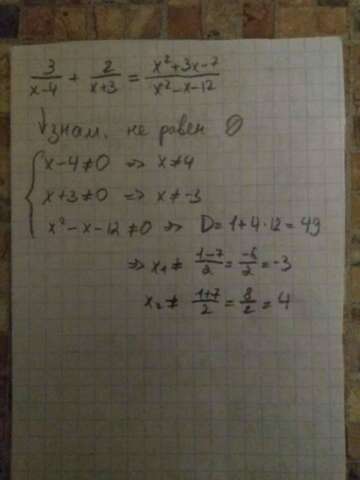 3/(x-4) + 2/(x+3) = (x²+3x-7)/(x²-x-12)
↓ знам. не равен 0
{ x-4≠0 => x≠4
x+3≠0 => x≠-3
x²-x-12≠0 => D=1+4·12=49
=> x₁≠ (1-7)/2 = -6/2 = -3
x₂≠ (1+7)/2 = 8/2 = 4